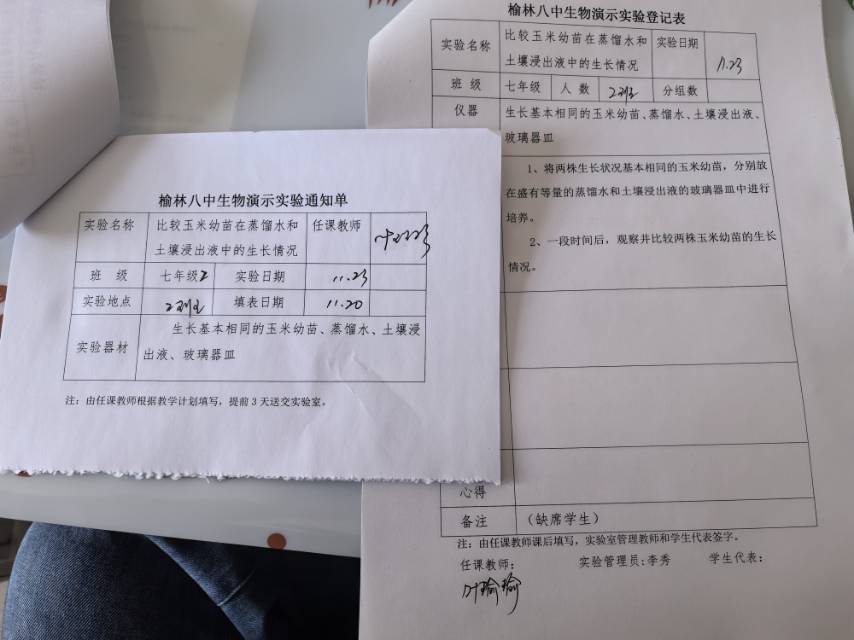 榆林八中生物演示实验通知单
实验名称 比较玉米幼苗在蒸馏水和 任课教师
土壤浸出液中的生长情况
班 级 七年级2 实验日期 11.23
实验地点 2班 填表日期 11.20
生长基本相同的玉米幼苗、蒸馏水、土壤浸
实验器材
出液、玻璃器皿
注：由任课教师根据教学计划填写，提前3天送交实验室。
榆林八中生物演示实验登记表
实验名称 比较玉米幼苗在蒸馏水和 实验日期 11.23
土壤浸出液中的生长情况
班 级 七年级 人 数 2班 分组数
仪器 生长基本相同的玉米幼苗、蒸馏水、土壤浸出液、
玻璃器皿
1、将两株生长状况基本相同的玉米幼苗，分别放
在盛有等量的蒸馏水和土壤浸出液的玻璃器皿中进行
培养。
2、一段时间后，观察并比较两株玉米幼苗的生长
情况。
心得
备注 （缺席学生）
注：由任课教师课后填写，实验室管理教师和学生代表签字。
任课教师： 实验管理员：李秀 学生代表：
叶瑜瑜